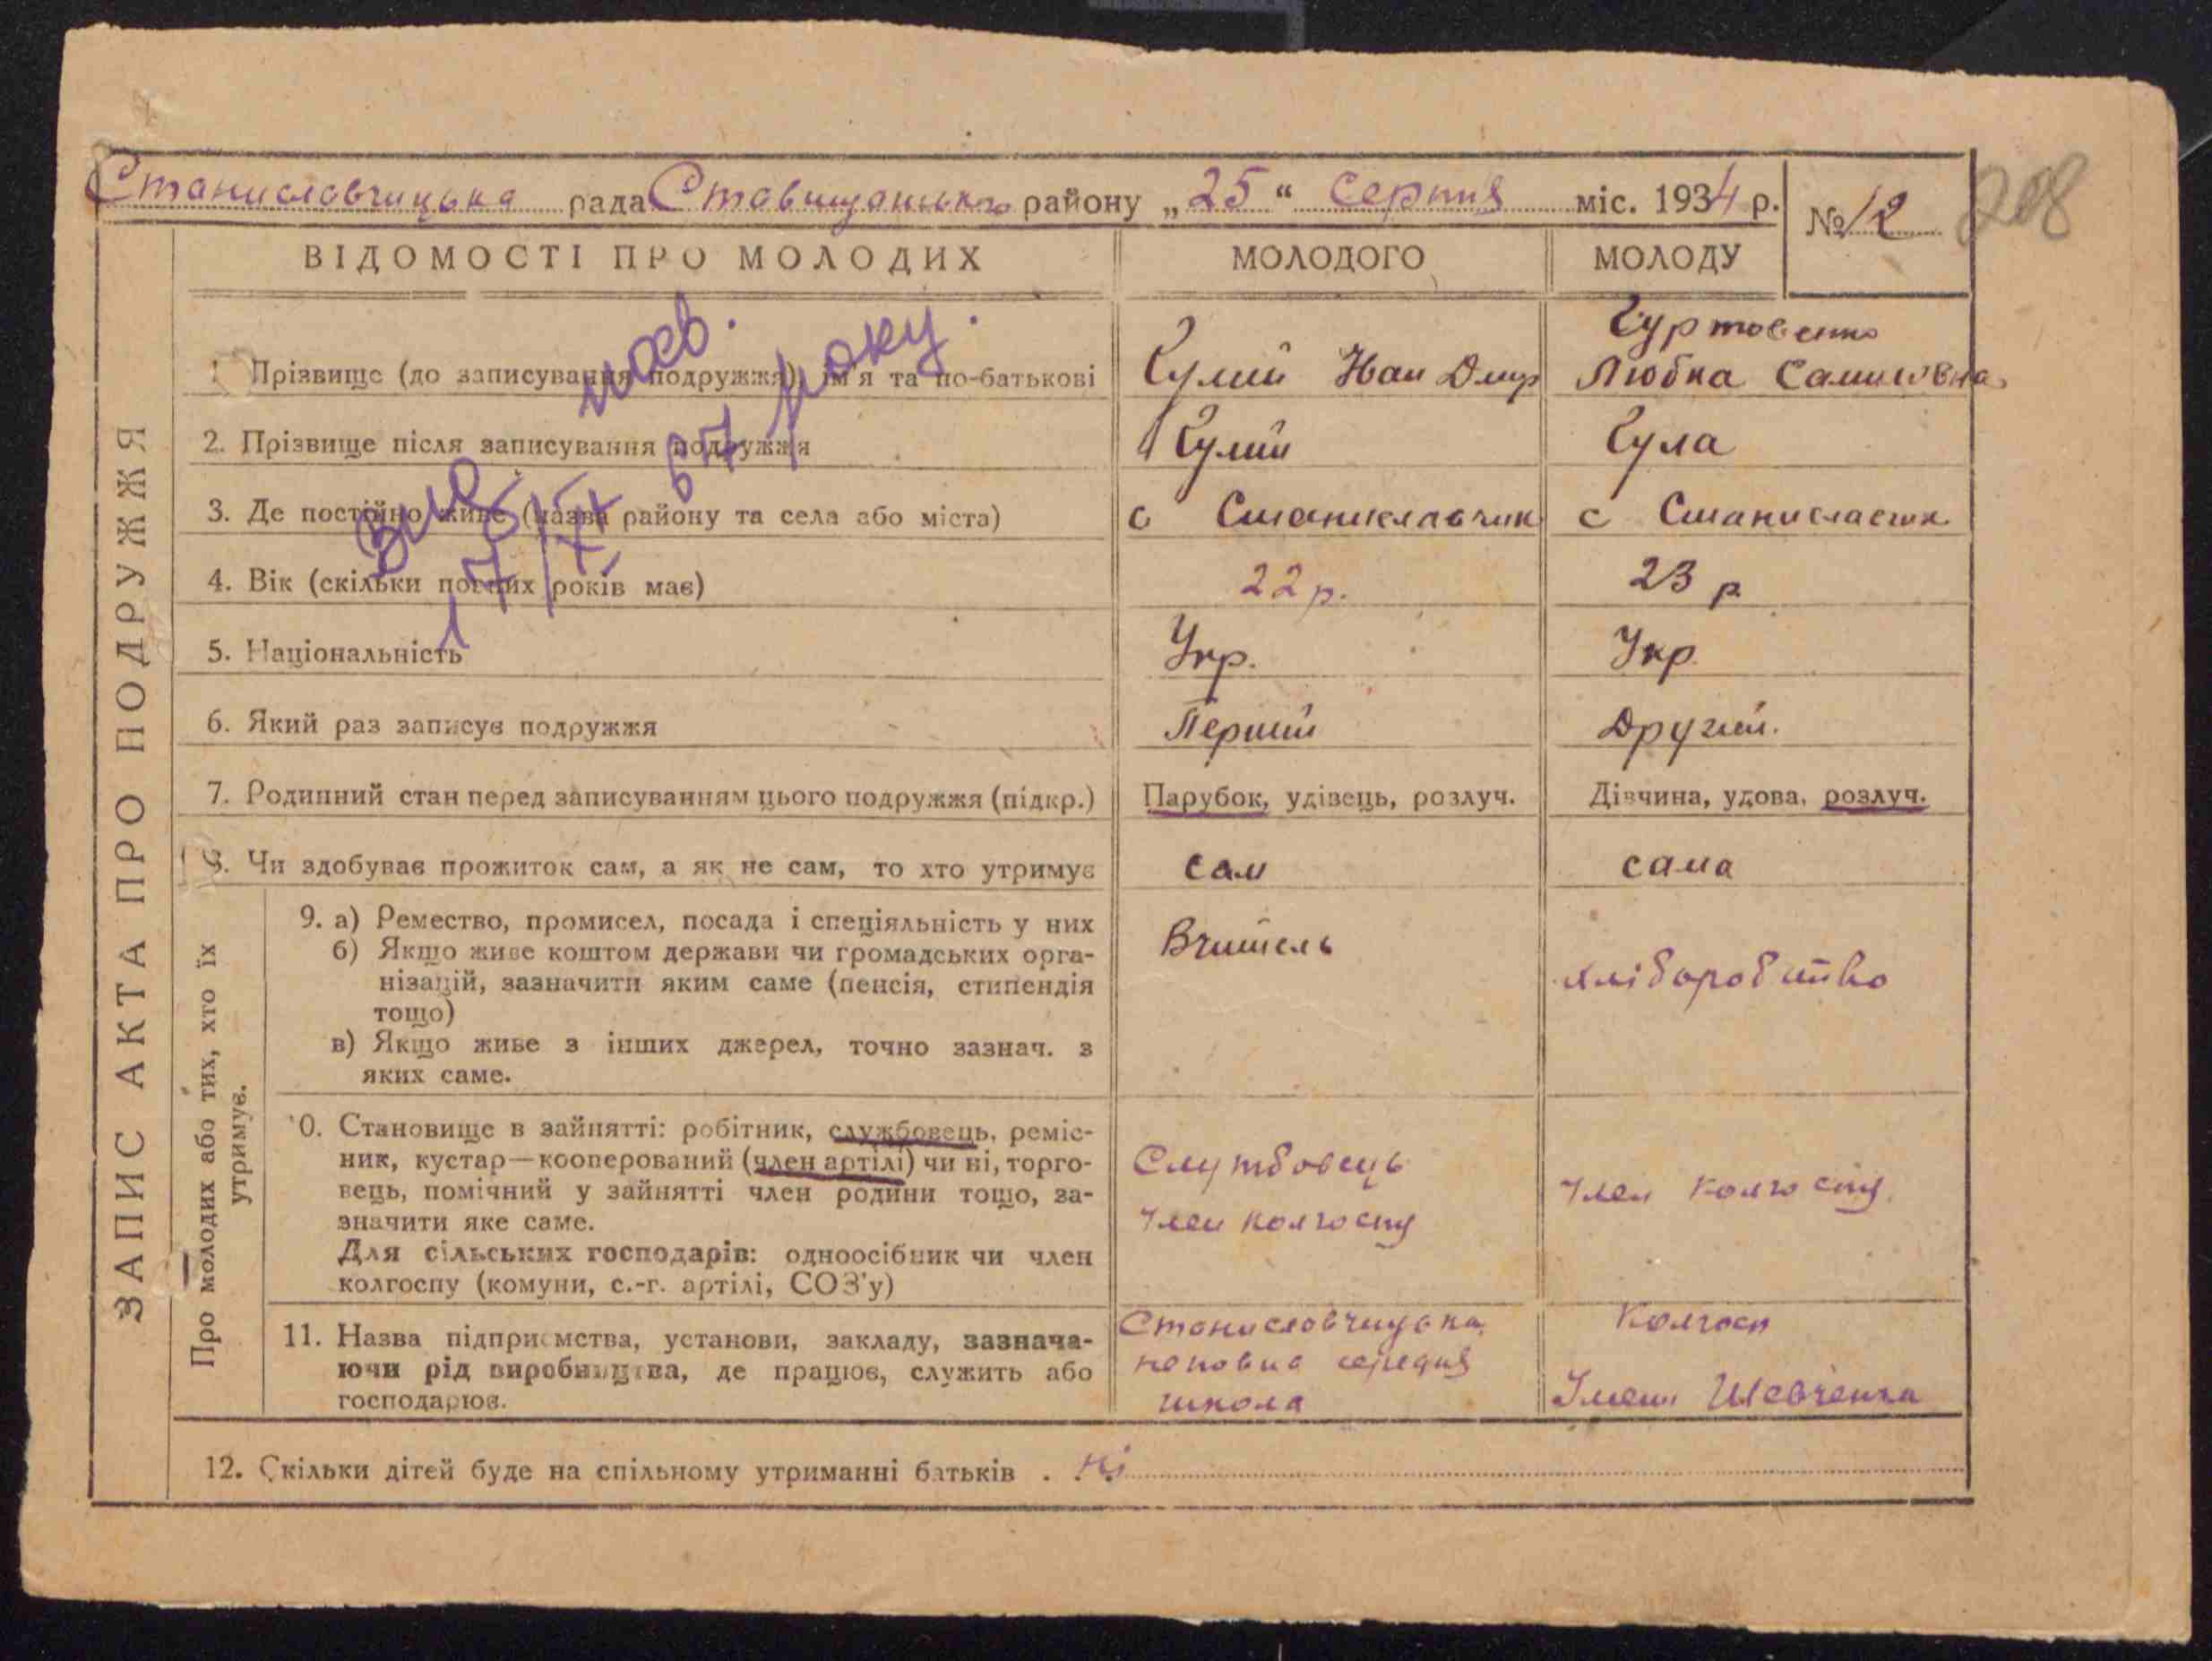 208
Станиславчицька рада Ставищанського району „25“ серпня міс. 1934 р. № 12
ВІДОМОСТІ ПРО МОЛОДИХ МОЛОДОГО МОЛОДУ
ЗАПИС АКТА ПРО ПОДРУЖЖЯ
1. Прізвище (до записування подружжя), ім'я та по-батькові Гулий Іван Дмир Гуртовенко Любка Самиловна
2. Прізвище після записування подружжя Гулий Гула
3. Де постійно живе (назва району та села або міста) с Станиславчик с Станиславчик
4. Вік (скільки повних років має) 22 р. 23 р
5. Національність Укр. Укр.
6. Який раз записує подружжя Перший Другий.
7. Родинний стан перед записуванням цього подружжя (підкр.) Парубок, удівець, розлуч. Дівчина, удова, розлуч.
8. Чи здобуває прожиток сам, а як не сам, то хто утримує сам сама
Про молодих або тих, хто їх
утримує.
9. а) Ремество, промисел, посада і спеціяльність у них
б) Якщо живе коштом держави чи громадських орга-
нізацій, зазначити яким саме (пенсія, стипендія
тощо)
в) Якщо живе з інших джерел, точно зазнач. з
яких саме.
Вчитель
хліборобство
10. Становище в зайнятті: робітник, службовець, реміс-
ник, кустар—кооперований (член артілі) чи ні, торго-
вець, помічний у зайнятті член родини тощо, за-
значити яке саме.
Для сільських господарів: одноосібник чи член
колгоспу (комуни, с.-г. артілі, СОЗ'у)
Службовець
член колгоспу
член колгоспу
11. Назва підприємства, установи, закладу, зазнача-
ючи рід виробництва, де працює, служить або
господарює.
Станиславчицька
неповна середня
школа
Колгосп
Імени Шевченка
12. Скільки дітей буде на спільному утриманні батьків . ні
67 року.